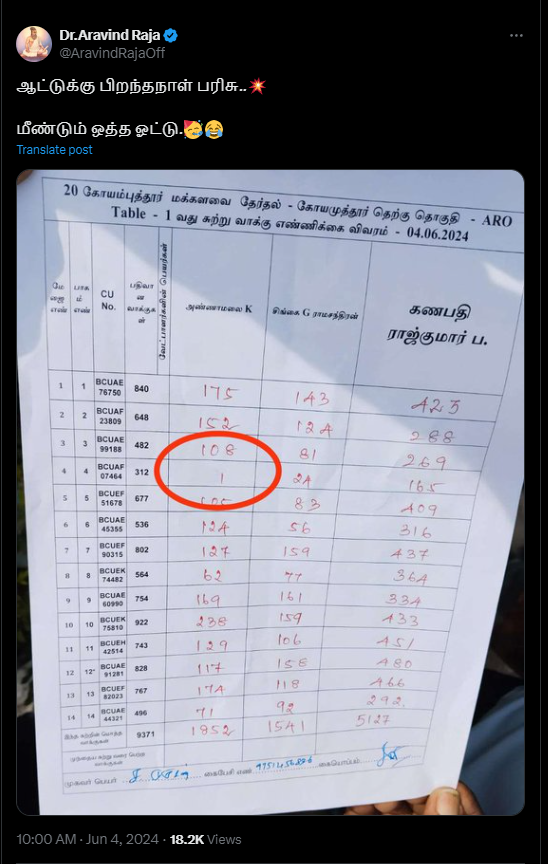 Dr.Aravind Raja
@AravindRajaOff
ஆட்டுக்கு பிறந்தநாள் பரிசு..💥
மீண்டும் ஒத்த ஓட்டு.🥳😂
Translate post
20 கோயம்புத்தூர் மக்களவை தேர்தல் - கோயமுத்தூர் தெற்கு தொகுதி - ARO
Table - 1 வது சுற்று வாக்கு எண்ணிக்கை விவரம் - 04.06.2024
மேஜை எண் பாகம் எண் CU No. பதிவான வாக்குகள் வேட்பாளர்களின் பெயர்கள் அண்ணாமலை K சிங்கை G ராமசந்திரன் கணபதி ராஜ்குமார் ப.
1 1 BCUAE 76750 840 175 143 423
2 2 BCUAF 23809 648 152 124 288
3 3 BCUAE 99188 482 108 81 269
4 4 BCUAF 07464 312 1 24 165
5 5 BCUEF 51678 677 105 83 409
6 6 BCUAE 45355 536 124 56 316
7 7 BCUEF 90315 802 127 159 437
8 8 BCUEK 74482 564 62 77 364
9 9 BCUAE 60990 754 169 161 334
10 10 BCUEK 75810 922 238 159 433
11 11 BCUEH 42514 743 129 106 451
12 12 BCUAE 91281 828 117 158 480
13 13 BCUEF 82023 767 174 118 466
14 14 BCUAE 44321 496 71 92 292
இந்த சுற்றின் மொத்த வாக்குகள் 9371 1852 1541 5127
முந்தைய சுற்று வரை பெற்ற வாக்குகள்
முகவர் பெயர் கைபேசி எண் கையொப்பம்
10:00 AM · Jun 4, 2024 · 18.2K Views